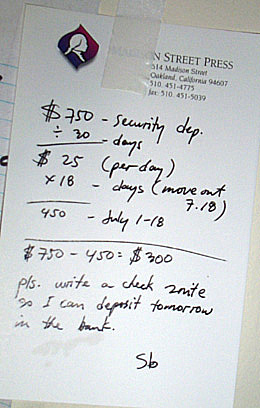 MADISON STREET PRESS
514 Madison Street
Oakland, California 94607
510. 451-4775
fax 510. 451-5039
$750 - security dep.
÷ 30 - days
$ 25 (per day)
x 18 - days (move out 7.18)
450 - July 1-18
$750 - 450 = $300
pls. write a check 2nite
so I can deposit tomorrow
in the bank.
Sb